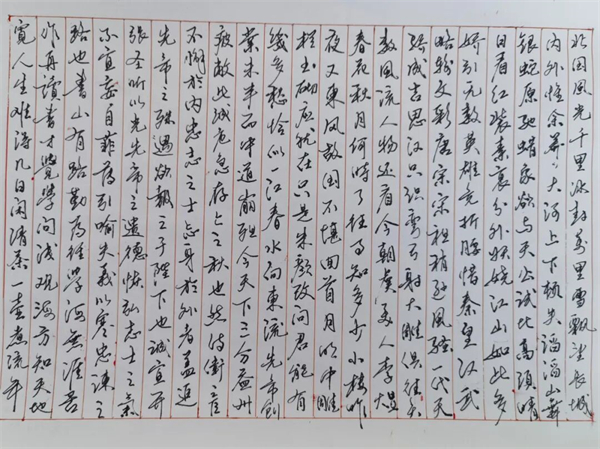 北国风光千里冰封万里雪飘望长城
内外惟余莽莽大河上下顿失滔滔山舞
银蛇原驰蜡象欲与天公试比高须晴
日看红装素裹分外妖娆江山如此多
娇引无数英雄竞折腰惜秦皇汉武
略输文彩唐宗宋祖稍逊风骚一代天
骄成吉思汉只识弯弓射大雕俱往矣
数风流人物还看今朝虞美人李煜
春花秋月何时了往事知多少小楼昨
夜又东风故国不堪回首月明中雕
栏玉砌应犹在只是朱颜改问君能有
几多愁恰似一江春水向东流先帝创
业未半而中道崩殂今天下三分益州
疲敝此诚危急存亡之秋也然侍卫之臣
不懈于内忠志之士忘身于外者盖追
先帝之殊遇欲报之于陛下也诚宜开
张圣听以光先帝之遗德恢弘志士之气
不宜妄自菲薄引喻失义以塞忠谏之
路也书山有路勤为径学海无涯苦
作舟读书才觉学问浅观海方知天地
宽人生难得几日闲清茶一壶煮流年